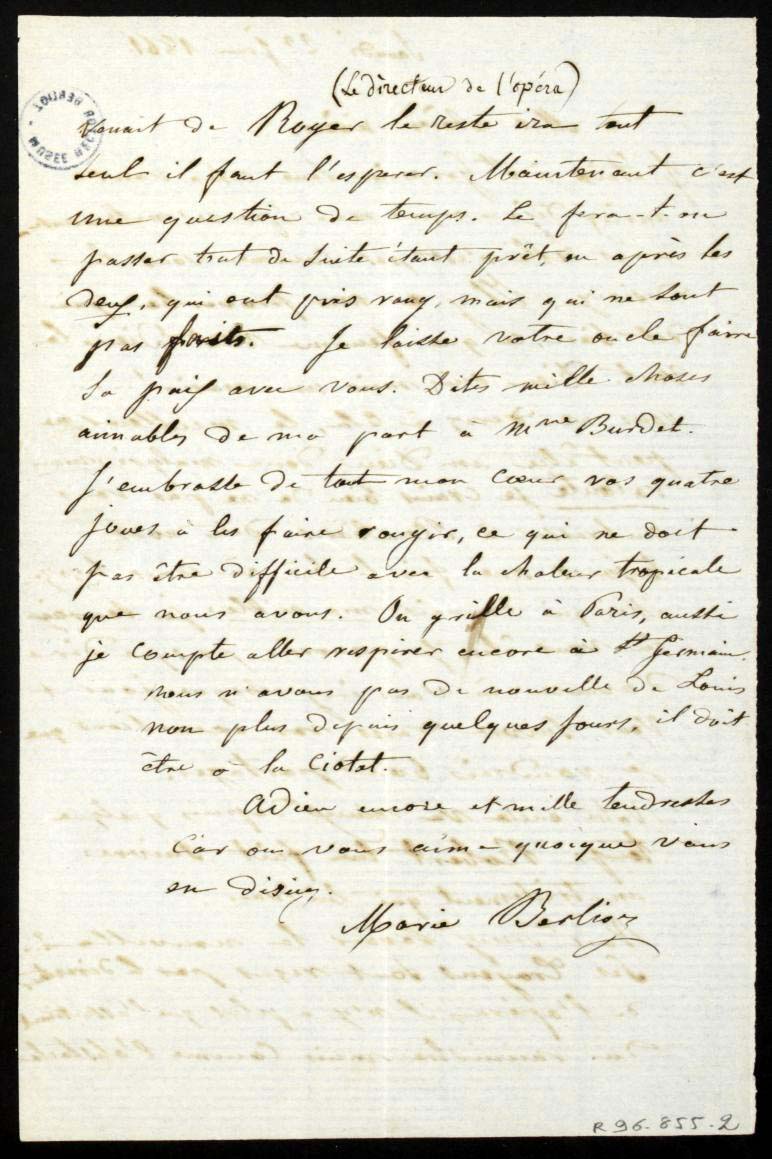 (Le directeur de l'opéra)
venait de Royer le reste ira tout
seul il faut l'esperer. Maintenant c'est
une question de temps. Le fera-t-on
passer tout de suite étant prêt, ou après les
deux, qui ont pris rang, mais qui ne sont
pas faits. Je laisse votre oncle faire
sa paix avec vous. Dites mille choses
aimables de ma part à Mme Burdet.
J'embrasse de tout mon cœur vos quatre
joues à les faire rougir, ce qui ne doit
pas être difficile avec la chaleur tropicale
que nous avons. On grille à Paris, aussi
je compte aller respirer encore à St Germain.
nous n'avons pas de nouvelle de Louis
non plus depuis quelques jours, il doit
être à la Ciotat.
Adieu encore et mille tendresses
Car on vous aime quoique vous
en disiez.
Marie Berlioz
MUSEE HECTOR BERLIOZ
R 96-855-2